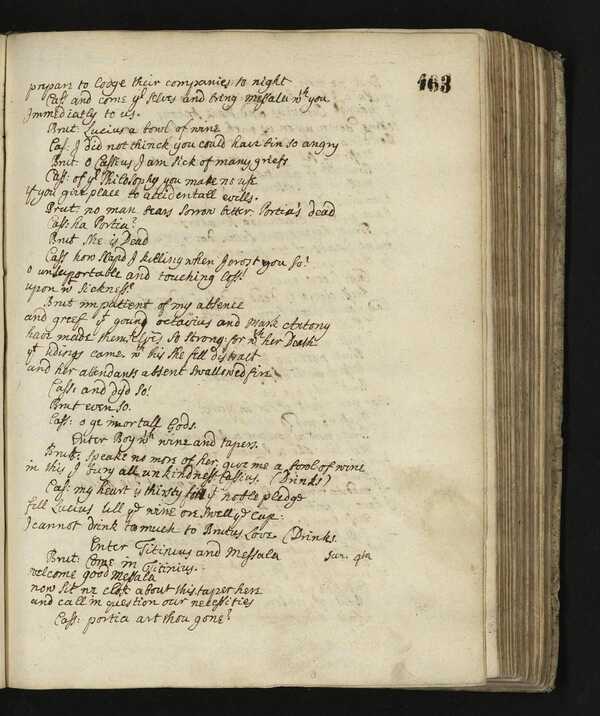 463
prepare to lodge their companies to night
Cass and come yr selves and bring messala wth you
Immediatly to us.
Brut. Lucius a bowl of wine
Cas: I did not thinck you could have bin so angry
Brut: o Cassius I am sick of many griefs
Cass: of yr Philosophy you make no use
if you give place to accidentall evills.
Brut: no man bears sorrow better: Portia's dead
Cass: ha Portia?
Brut she is Dead
Cass how scapd I killing when I crost you so!
o unsuportable and touching loss!
upon wt sickness?
Brut impatient of my absence
and greef yt young octavius and mark Antony
have made themselves so strong: for wth her Death
yt tidings came. wth this she fell distract
and her attendants absent swallowed fire
Cass: and dyd so!
Brut even so.
Cass: o ye imortall Gods.
Enter Boy wth wine and tapers.
Brut: speake no more of her, give me a bowl of wine
in this I bury all unkindness Cassius. (Drinks)
Cas: my heart is thirsty for yt noble pledge
fill Lucius till ye wine ore swell ye cup:
I cannot drink too much to Brutus Love. (Drinks.
Enter Titinius and Messala
Brut: Come in Titinius.
welcome good Messala
now sit we close about this taper here
and call in question our necessities
Cass: portia art thou gone?